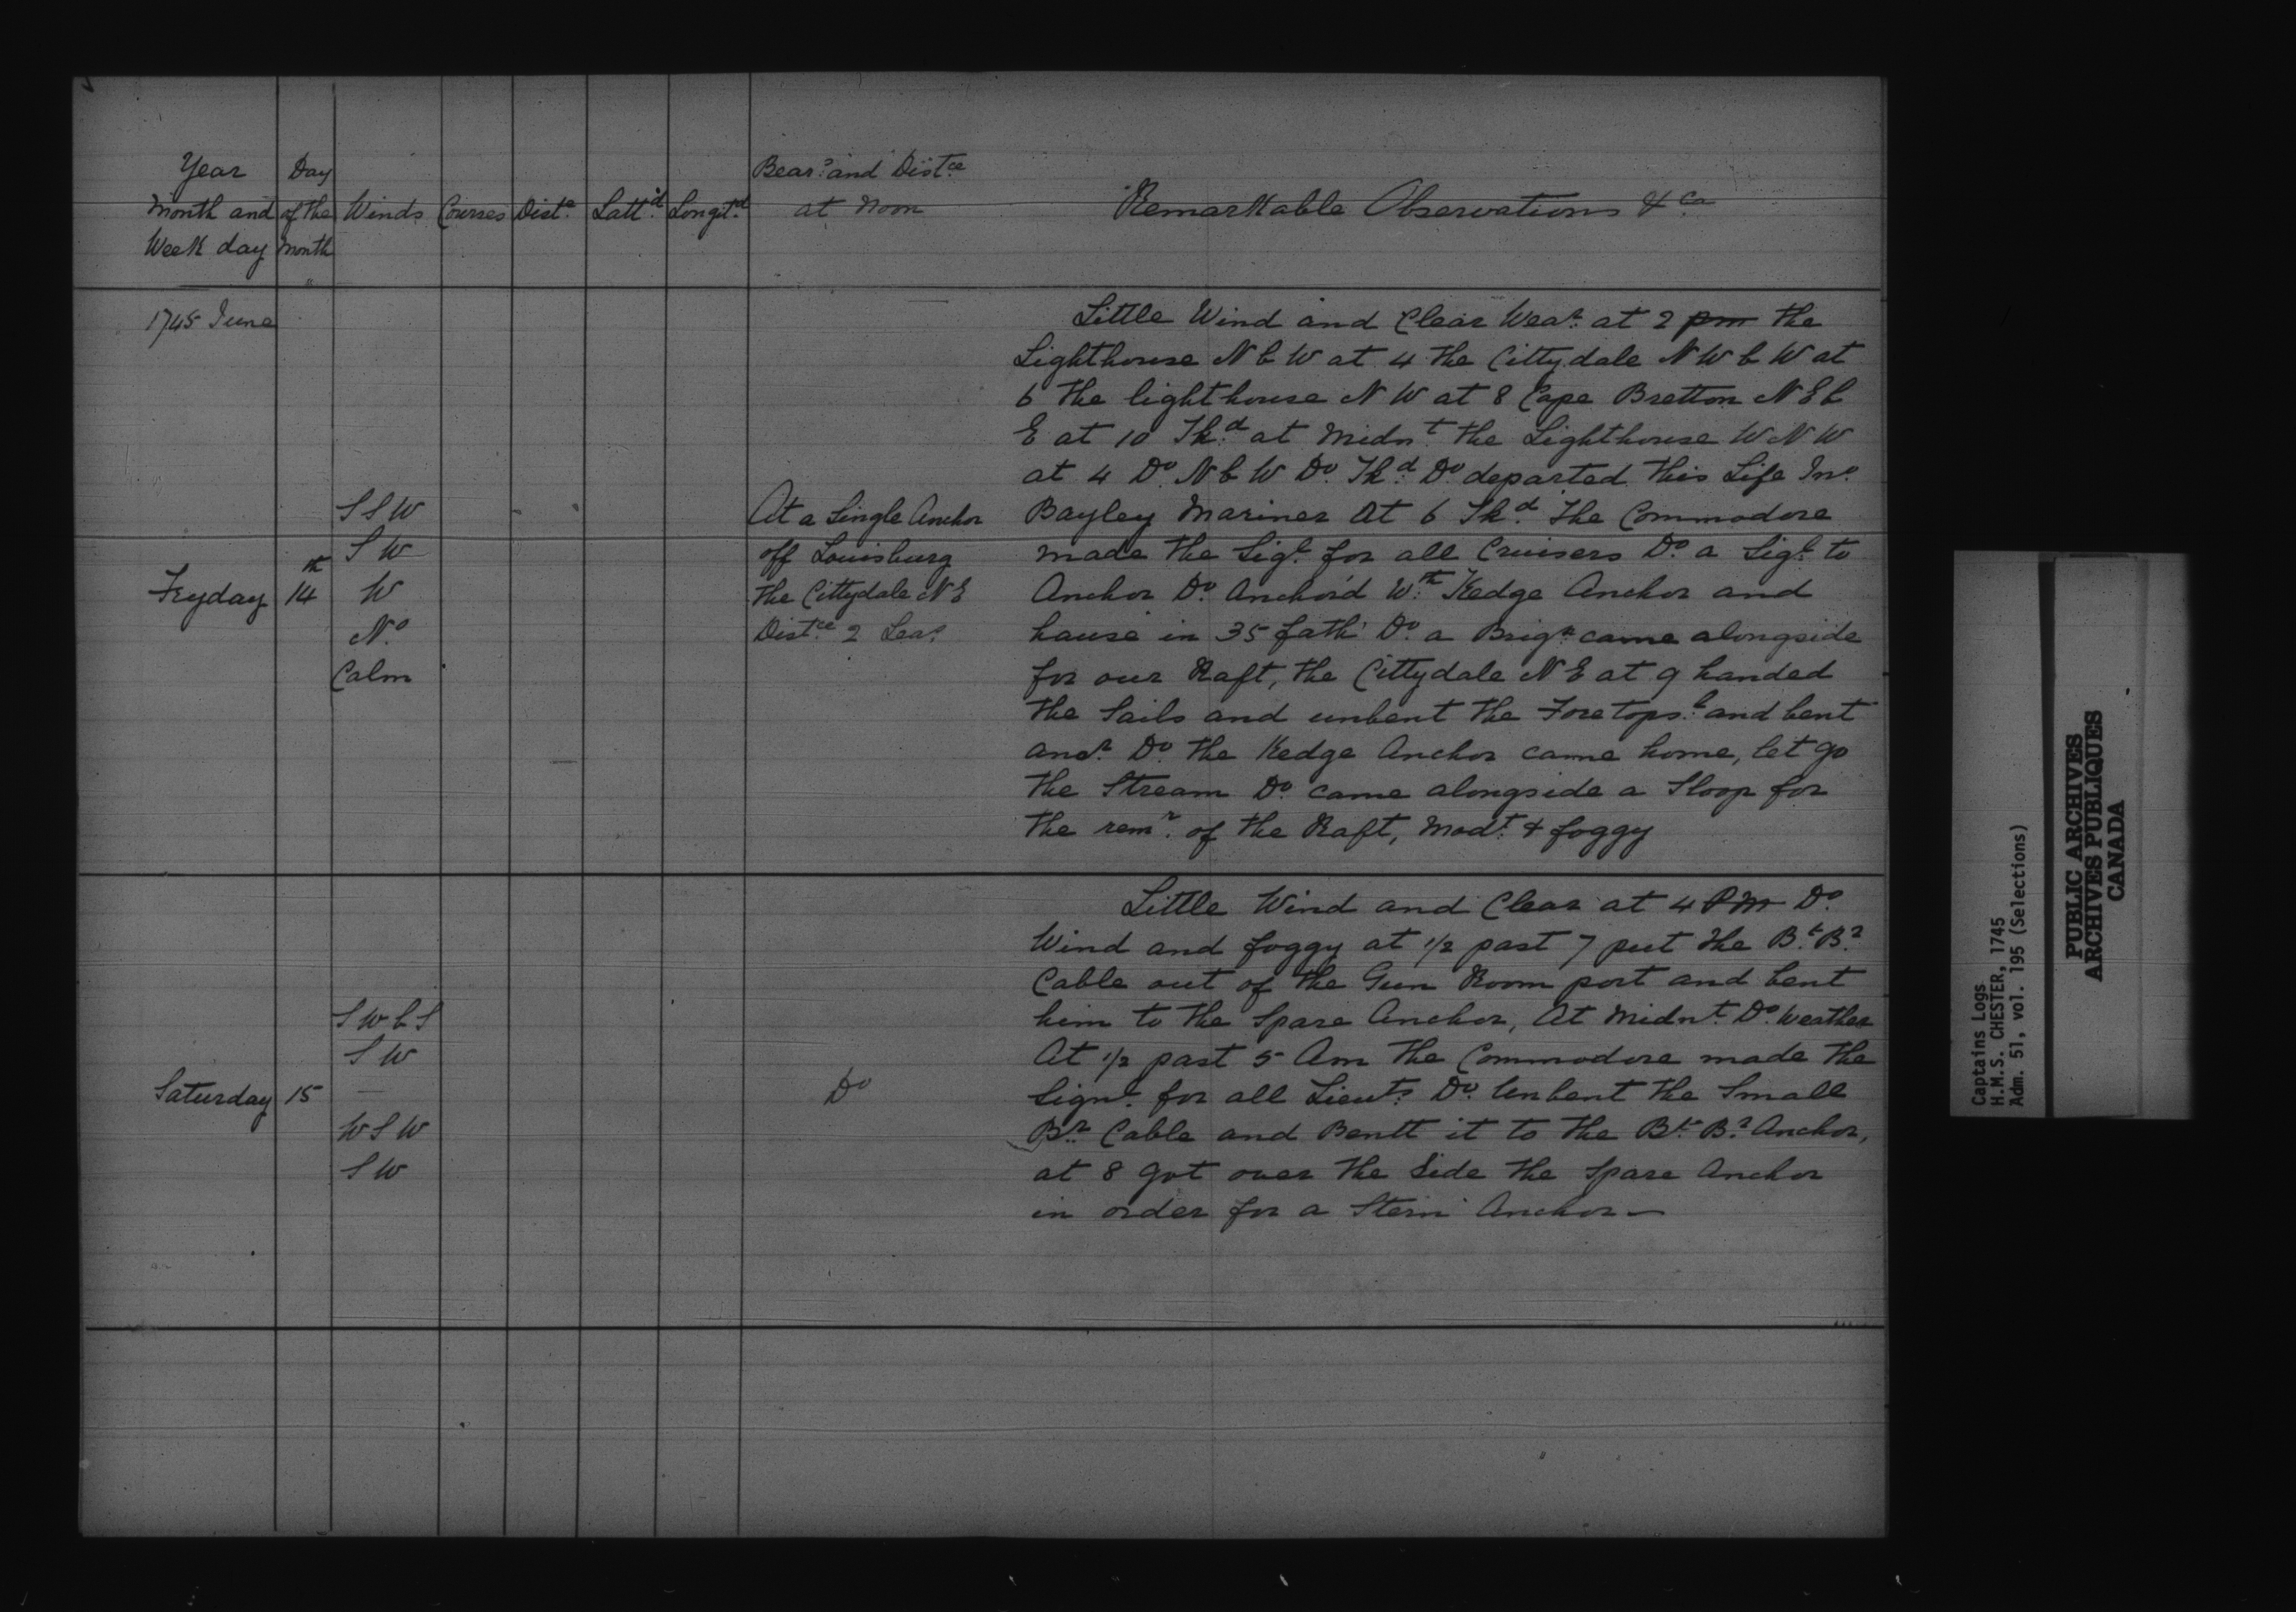 Year
Month and
Week day
Day
of the
Month
Winds
Courses
Dist.e
Latt.d
Longit.d
Bear.s and Dist.ce
at Noon
Remarkable Observations &ca
1745 June
Fryday
14th
SSW
SW
W
No.
Calm
At a Single Anchor
off Louisburg
the Cittydale NE
Dist.ce 2 Leas
Little Wind and Clear Wear. at 2 pm the
Lighthouse N b W at 4 the Cittydale N W b W at
6 the lighthouse N W at 8 Cape Bretton N E b
E at 10 Tk.d at Midn.t the Lighthouse W N W
at 4 Do. N b W Do. Tk.d Do. departed this Life Jno.
Bayley Mariner At 6 Tk.d The Commodore
made the Sigl. for all Cruisers Do. a Sigl. to
Anchor Do. Anchor'd Wth. Kedge Anchor and
hause in 35 fath Do. a Brign. came alongside
for our Raft, the Cittydale N E at 9 handed
the Sails and unbent the Foretops.l and bent
anor. Do. the Kedge Anchor came home, let go
the Stream Do. came alongside a Sloop for
the remr. of the Raft, Modt. & foggy
Saturday
15
S W b S
S W
—
W S W
S W
Do
Little Wind and Clear at 4 PM Do.
Wind and foggy at 1/2 past 7 put the Bt. Br.
Cable out of the Gun Room port and bent
him to the Spare Anchor, At Midnt. Do. Weather
At 1/2 past 5 Am the Commodore made the
Signl. for all Lieuts. Do. Unbent the Small
Br. Cable and Bentt it to the Bt. Br. Anchor,
at 8 got over the Side the Spare Anchor
in order for a Stern Anchor —
Captains Logs
H.M.S. CHESTER, 1745
Adm. 51, vol. 195 (Selections)
PUBLIC ARCHIVES
ARCHIVES PUBLIQUES
CANADA